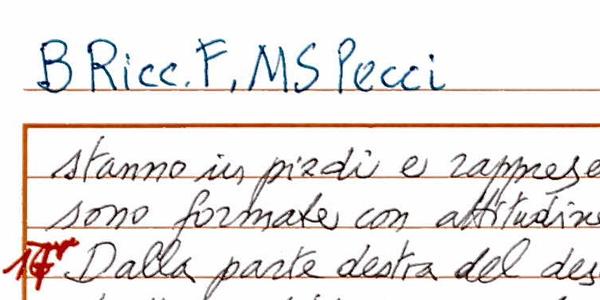 B Ricc. F, MS Pecci
stanno in piedi e rapprese
sono formate con attitudine
Dalla parte destra del des